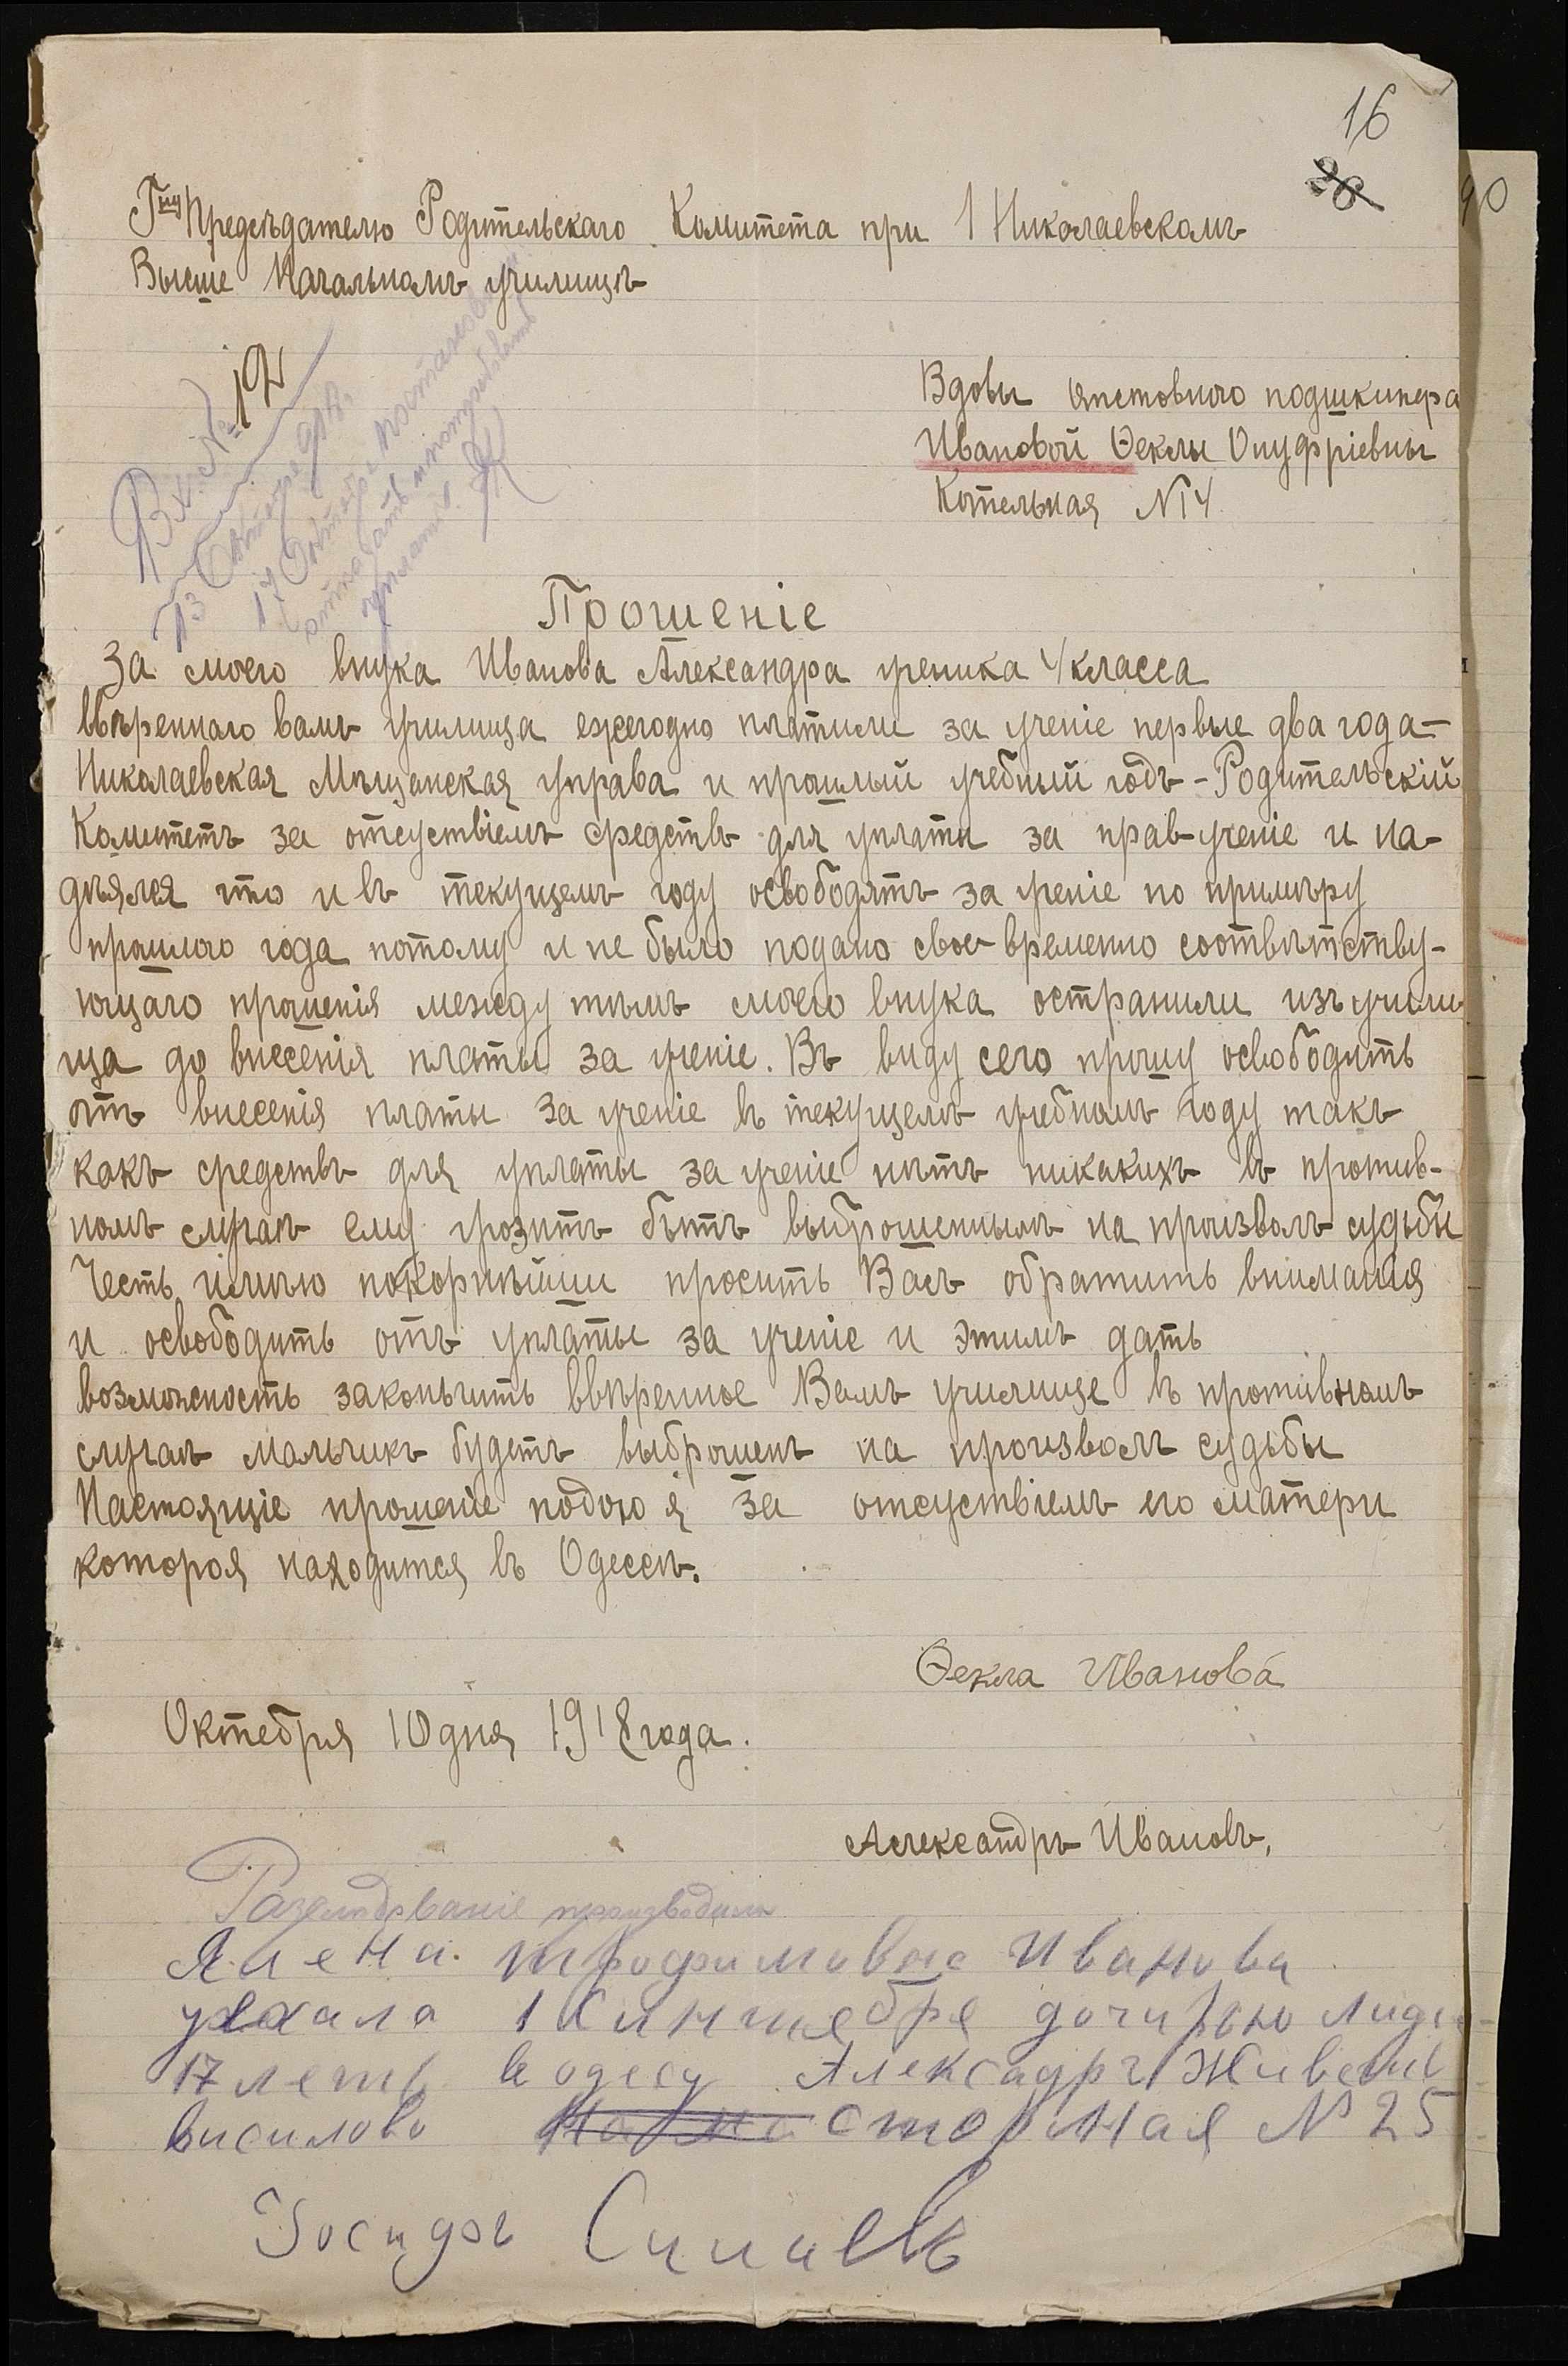 16
26
90
Г-ну Председателю Родительскаго Комитета при 1 Николаевскомъ
Высше Начальномъ училищѣ
Вдовы отставного подшкипера
Ивановой Ѳеклы Онуфріевны
Котельная N14
Вх. № 12
13 Октября 918 г.
17 Октября постановлено
Прошеніе
За моего внука Иванова Александра ученика 4 класса
ввѣреннаго вамъ училища ежегодно платили за ученіе первые два года –
Николаевская Мѣщанская Управа и прошлый учебный годъ – Родительскій
Комитетъ за отсуствіемъ средствъ для уплаты за прав-ученіе и на-
дѣялся что и въ текущемъ году освободятъ за ученіе по примѣру
прошлого года потому и не было подано свое временно соотвѣтству-
ющаго прошенія между тѣмъ моего внука остранили изъ учили
ща до внесенія платы за ученіе. Въ виду сего прошу освободить
отъ внесенія платы за ученіе въ текущемъ учебномъ году такъ
какъ средствъ для уплаты за ученіе нѣтъ никакихъ въ против-
номъ случаѣ ему грозитъ быть выброшеннымъ на произволъ судьбы
Честь имѣю покорнѣйши просить Васъ обратить вниманія
и освободить отъ уплаты за ученіе и этимъ дать
возможность законьчить ввѣренное Вамъ училище въ противномъ
случаѣ мальчикъ будетъ выброшенъ на произволъ судьбы
Настоящіе прошеніе подою я за отсуствіемъ его матери
которая находится въ Одессѣ.
Ѳекла Иванова
Октебря 10 дня 1918 года.
Александръ Ивановъ,
Разслѣдованіе производилъ
Трофимовна Иванова
уехала 1 Синтебря
17 летъ в одесу Алексадръ Живетъ
№ 25